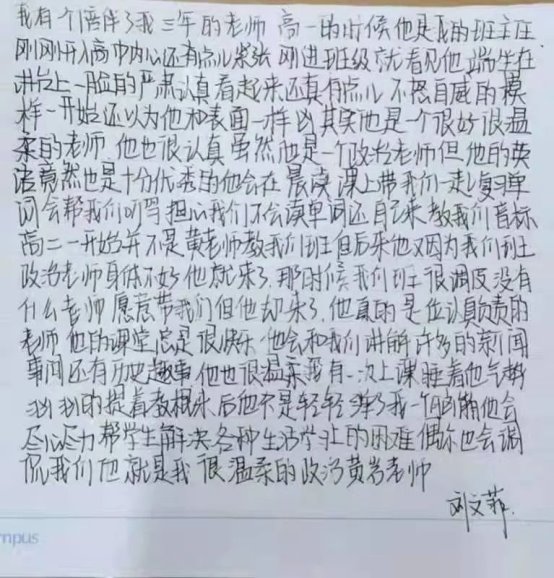 我有个陪伴了我三年的老师 高一的时候他是我的班主任
刚刚升入高中内心还有点儿紧张 刚进班级就看见他端坐在
讲台上一脸的严肃认真看起来还真有点儿 不怒自威的模
样一开始还以为他和表面一样凶其实他是个很好很温
柔的老师 他也很认真虽然他是一个政治老师但他的英
语竟然也是十分优秀的他会在晨读课上带我们一起复习单
词会帮我们听写担心我们不会读单词还自己来教我们音标
高二一开始并不是黄老师教我们班但后来他又因为我们班
政治老师身体不好他就来了那时候我们班很调皮没有
什么老师愿意带我们但他却来了他真的是位认真负责的
老师他的课堂总是很快乐他会和我们讲解许多的新闻
事间还有历史趣事他也很温柔我有一次上课睡着他气
汹汹的提着教棍来后他只是轻轻弹了我一个他会
尽心尽力帮学生解决各种生活学习上的困难偶尔也会调
侃我们他就是我很温柔的政治黄老师
刘文菲.
mpus